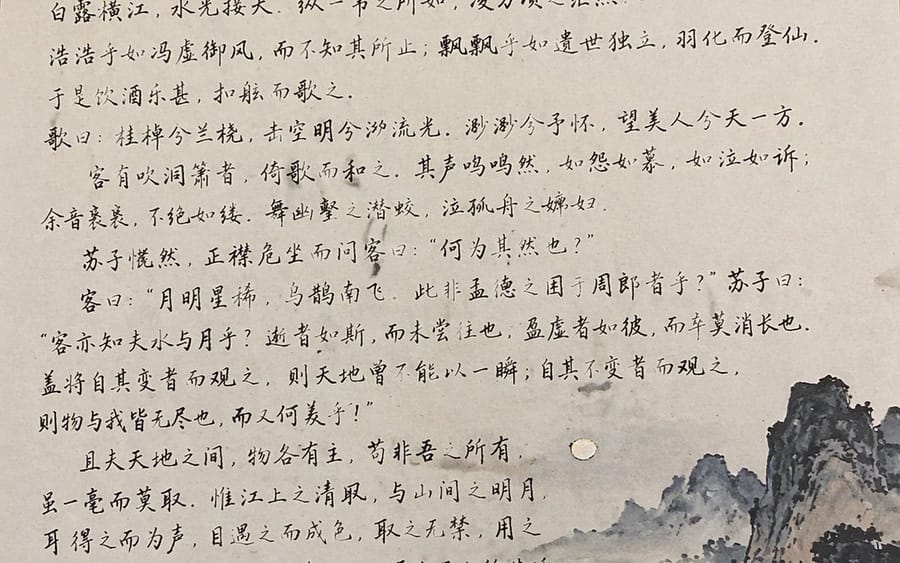 白露横江，水光接天．纵一苇之所如，凌万顷之茫然．
浩浩乎如冯虚御风，而不知其所止；飘飘乎如遺世独立，羽化而登仙．
于是饮酒乐甚，扣舷而歌之．
歌曰：桂棹兮兰桡，击空明兮泐流光．渺渺兮予怀，望美人兮天一方．
客有吹洞箫者，倚歌而和之．其声呜呜然，如怨如慕，如泣如诉；
余音袅袅，不绝如缕．舞幽壑之潜蛟，泣孤舟之嫠妇．
苏子慌然，正襟危坐而问客曰："何为其然也？"
客曰："月明星稀，乌鹊南飞．此非孟德之困于周郎者乎？"苏子曰：
"客亦知夫水与月乎？逝者如斯，而未尝往也，盈虚者如彼，而卒莫消长也．
盖将自其变者而观之，则天地曾不能以一瞬；自其不变者而观之，
则物与我皆无尽也，而又何美乎！"
且夫天地之间，物各有主，苟非吾之所有，
虽一毫而莫取．惟江上之清取，与山间之明月，
耳得之而为声，目遇之而成色，取之无禁，用之